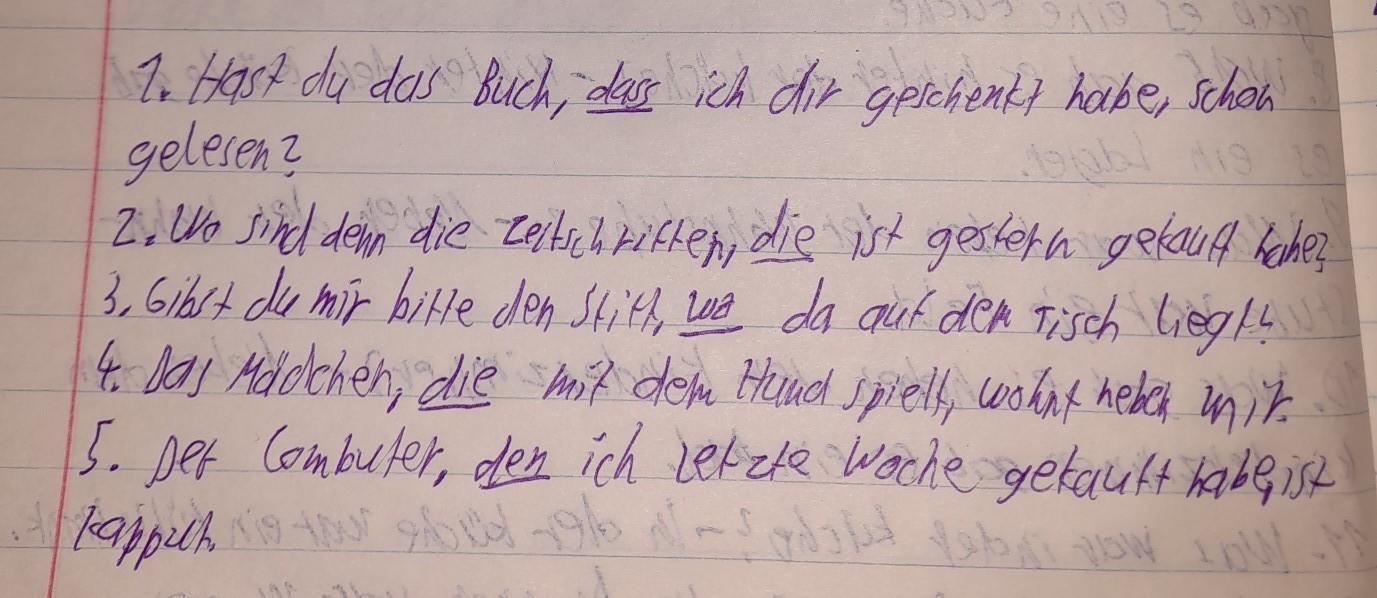 1. Hast du das Buch, dass ich dir geschenkt habe, schon
gelesen?
2. Wo sind denn die Zeitschriften, die ist gestern gekauft habe?
3. Gibst du mir bitte den Stift, wo da auf dem Tisch liegt?
4. Das Mädchen, die mit dem Hund spielt, wohnt neben mir.
5. Der Combuter, den ich letzte Woche gekauft habe, ist
kapputt.